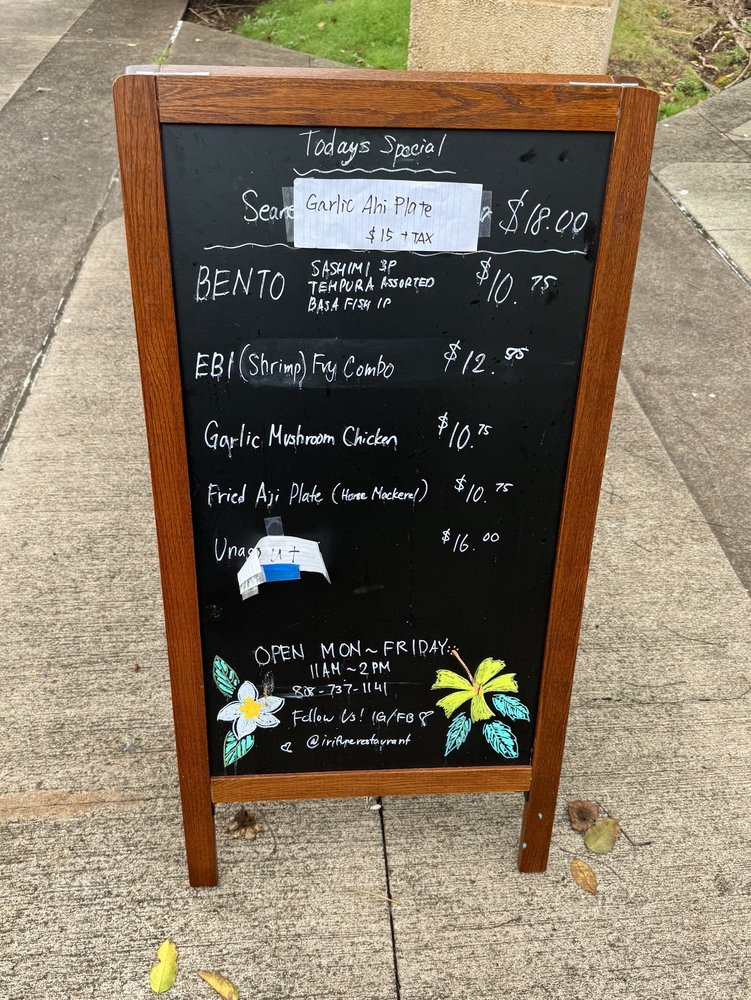 Todays Special
Garlic Ahi Plate
$15 + TAX
$18.00
BENTO
SASHIMI 3P
TEMPURA ASSORTED
BASA FISH 1P
$10.75
EBI (Shrimp) Fry Combo $12.95
Garlic Mushroom Chicken $10.75
Fried Aji Plate (Horse Mackerel) $10.75
$16.00
OPEN MON ~ FRIDAY
11AM ~ 2PM
808-737-1141
Follow Us! IG/FB
@irifunerestaurant